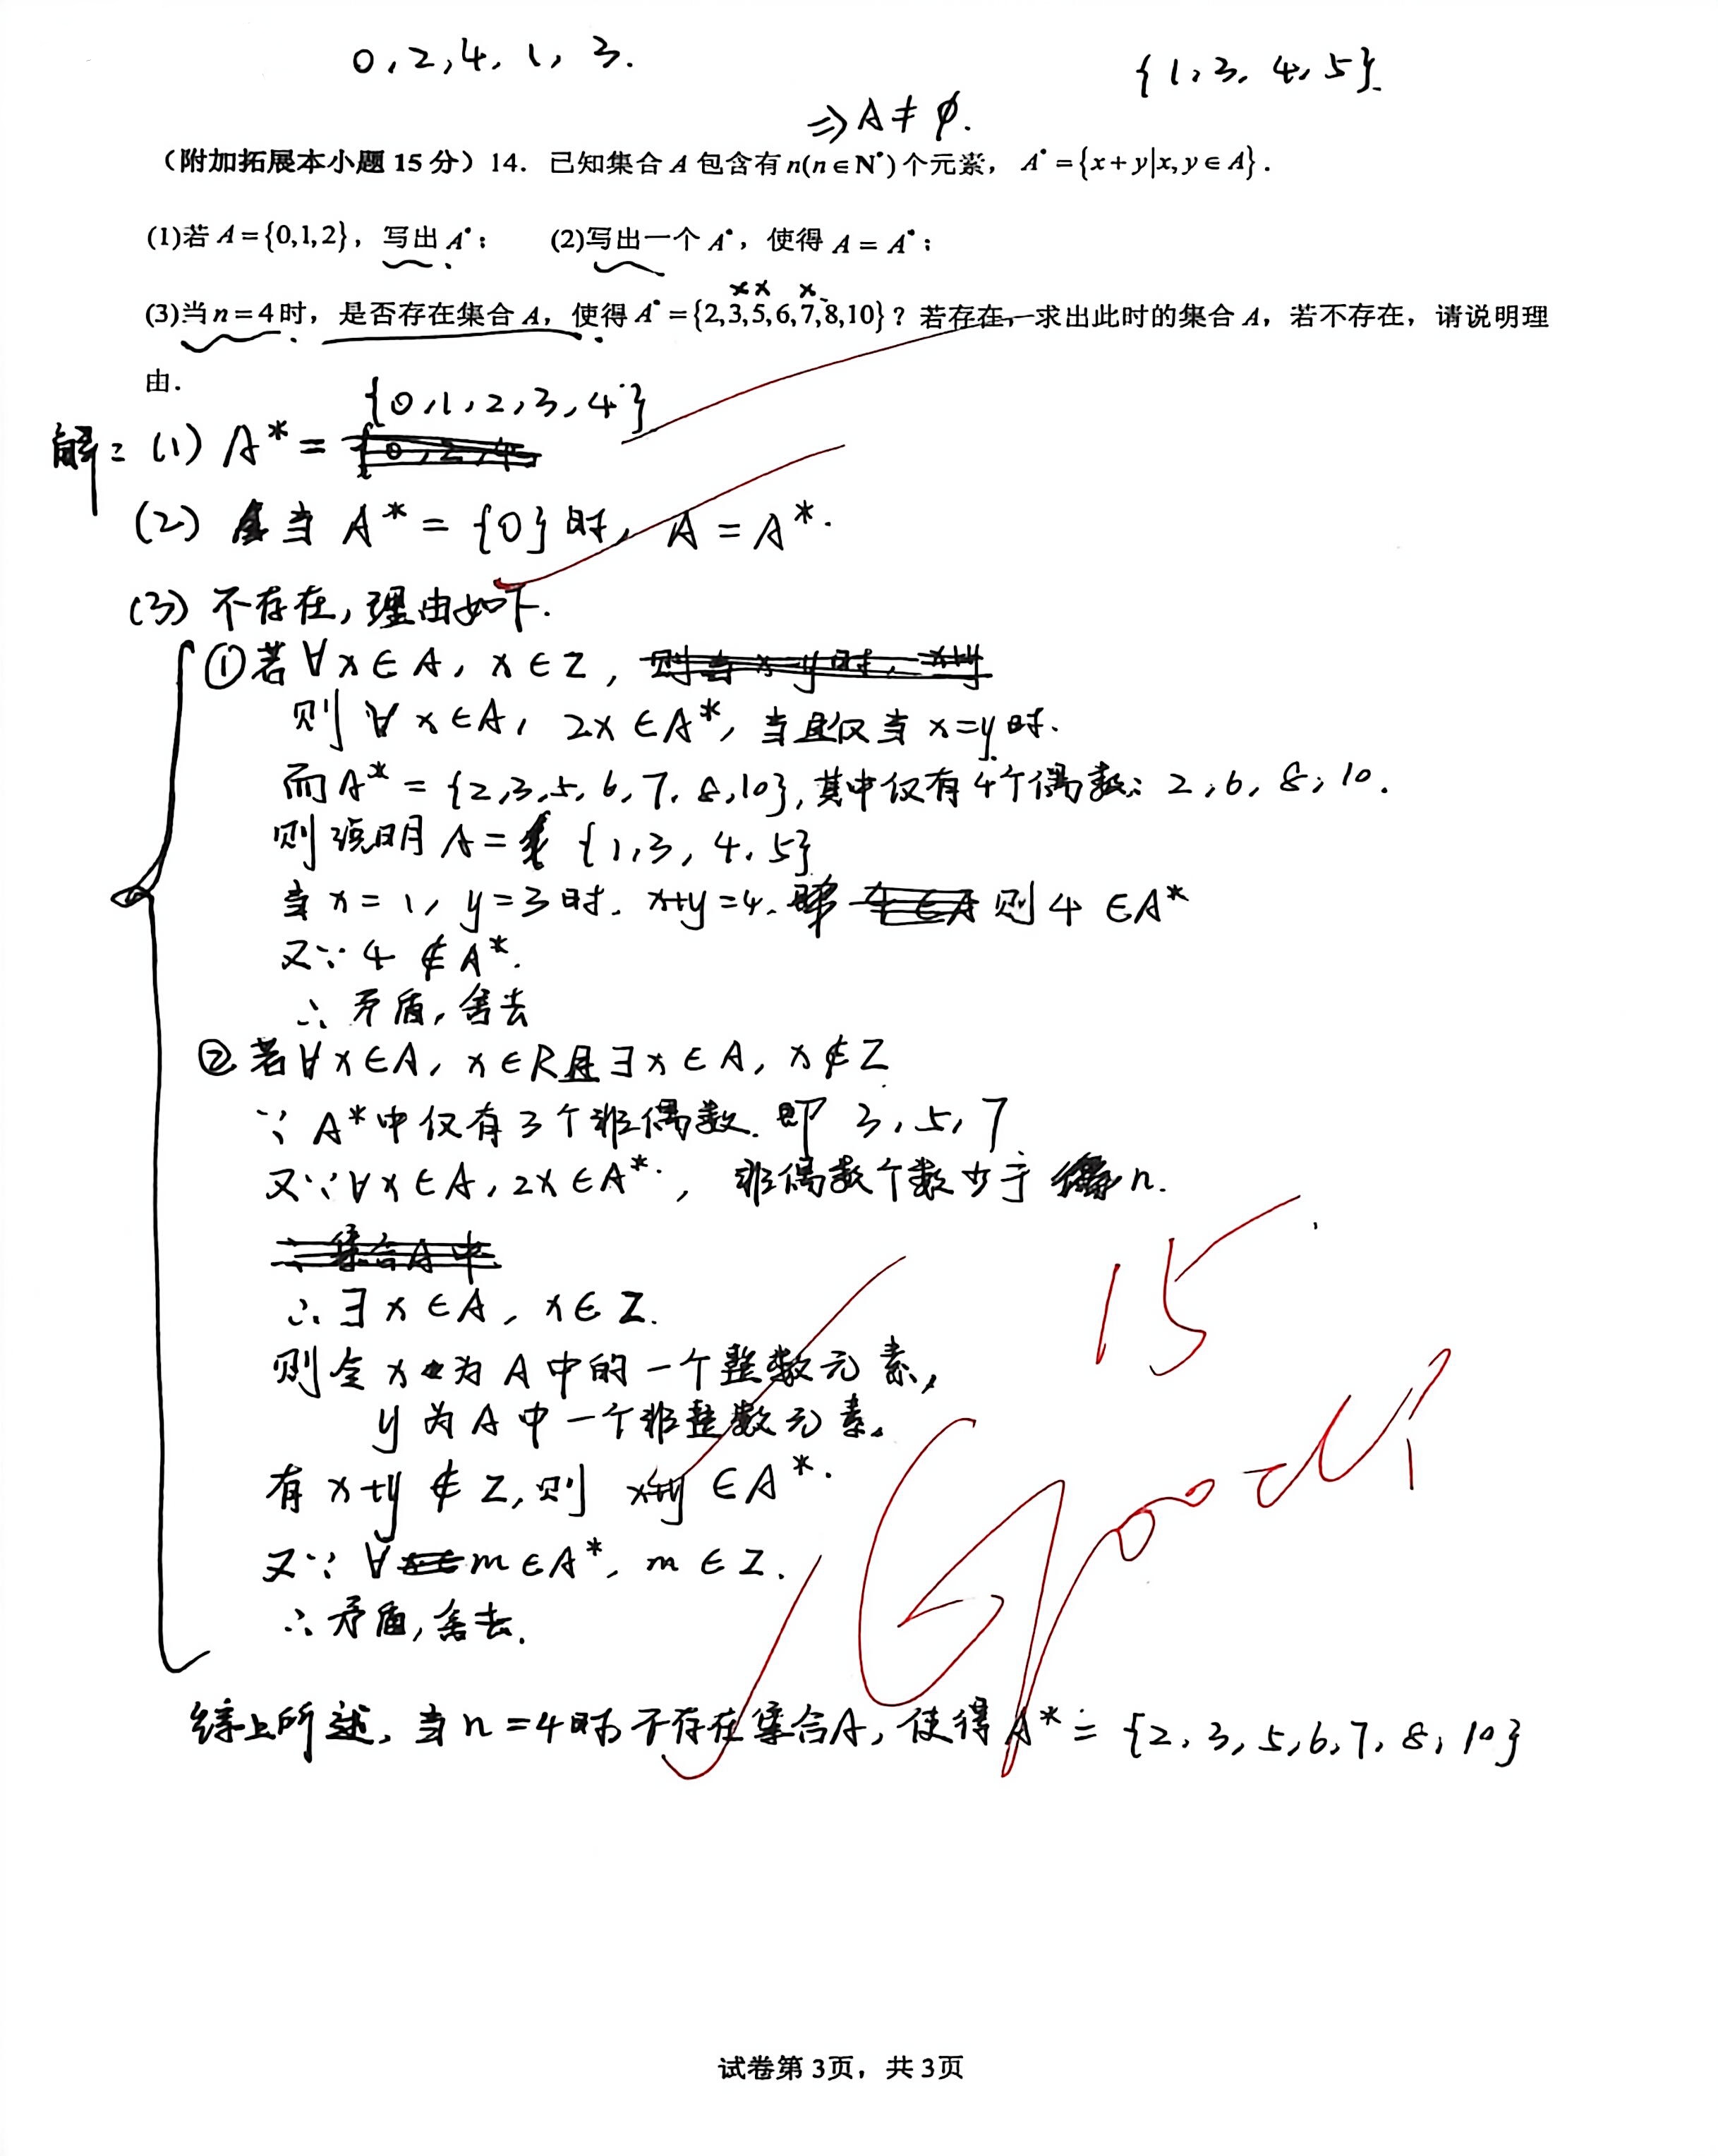 0,2,4,1,3.
{1,3,4,5}.
⇒A≠∅.
（附加拓展本小题 15 分）14．已知集合 A 包含有 n(n∈N*)个元素，A*={x+y|x,y∈A}．
(1)若 A={0,1,2}，写出 A*； (2)写出一个 A*，使得 A=A*；
×× ×
(3)当 n=4 时，是否存在集合 A，使得 A*={2,3,5,6,7,8,10}？若存在，求出此时的集合 A，若不存在，请说明理
由．
{0,1,2,3,4}
解：(1) A*=
(2) 当 A*={0}时，A=A*.
(3) 不存在,理由如下.
①若∀x∈A, x∈Z,
则∀x∈A, 2x∈A*, 当且仅当x=y时.
而A*={2,3,5,6,7,8,10},其中仅有4个偶数：2,6,8,10.
则说明A={1,3,4,5}
当x=1, y=3时. x+y=4. 则4∈A*
又∵4∉A*.
∴矛盾,舍去
②若∀x∈A, x∈R且∃x∈A, x∉Z
∵A*中仅有3个非偶数.即3,5,7
又∵∀x∈A,2x∈A*, 非偶数个数少于n.
∴∃x∈A, x∈Z.
则令x为A中的一个整数元素,
y为A中一个非整数元素.
有x+y∉Z,则x+y∈A*.
又∵∀m∈A*, m∈Z.
∴矛盾,舍去.
15
Good!
综上所述,当n=4时不存在集合A,使得A*={2,3,5,6,7,8,10}
试卷第 3页，共 3页